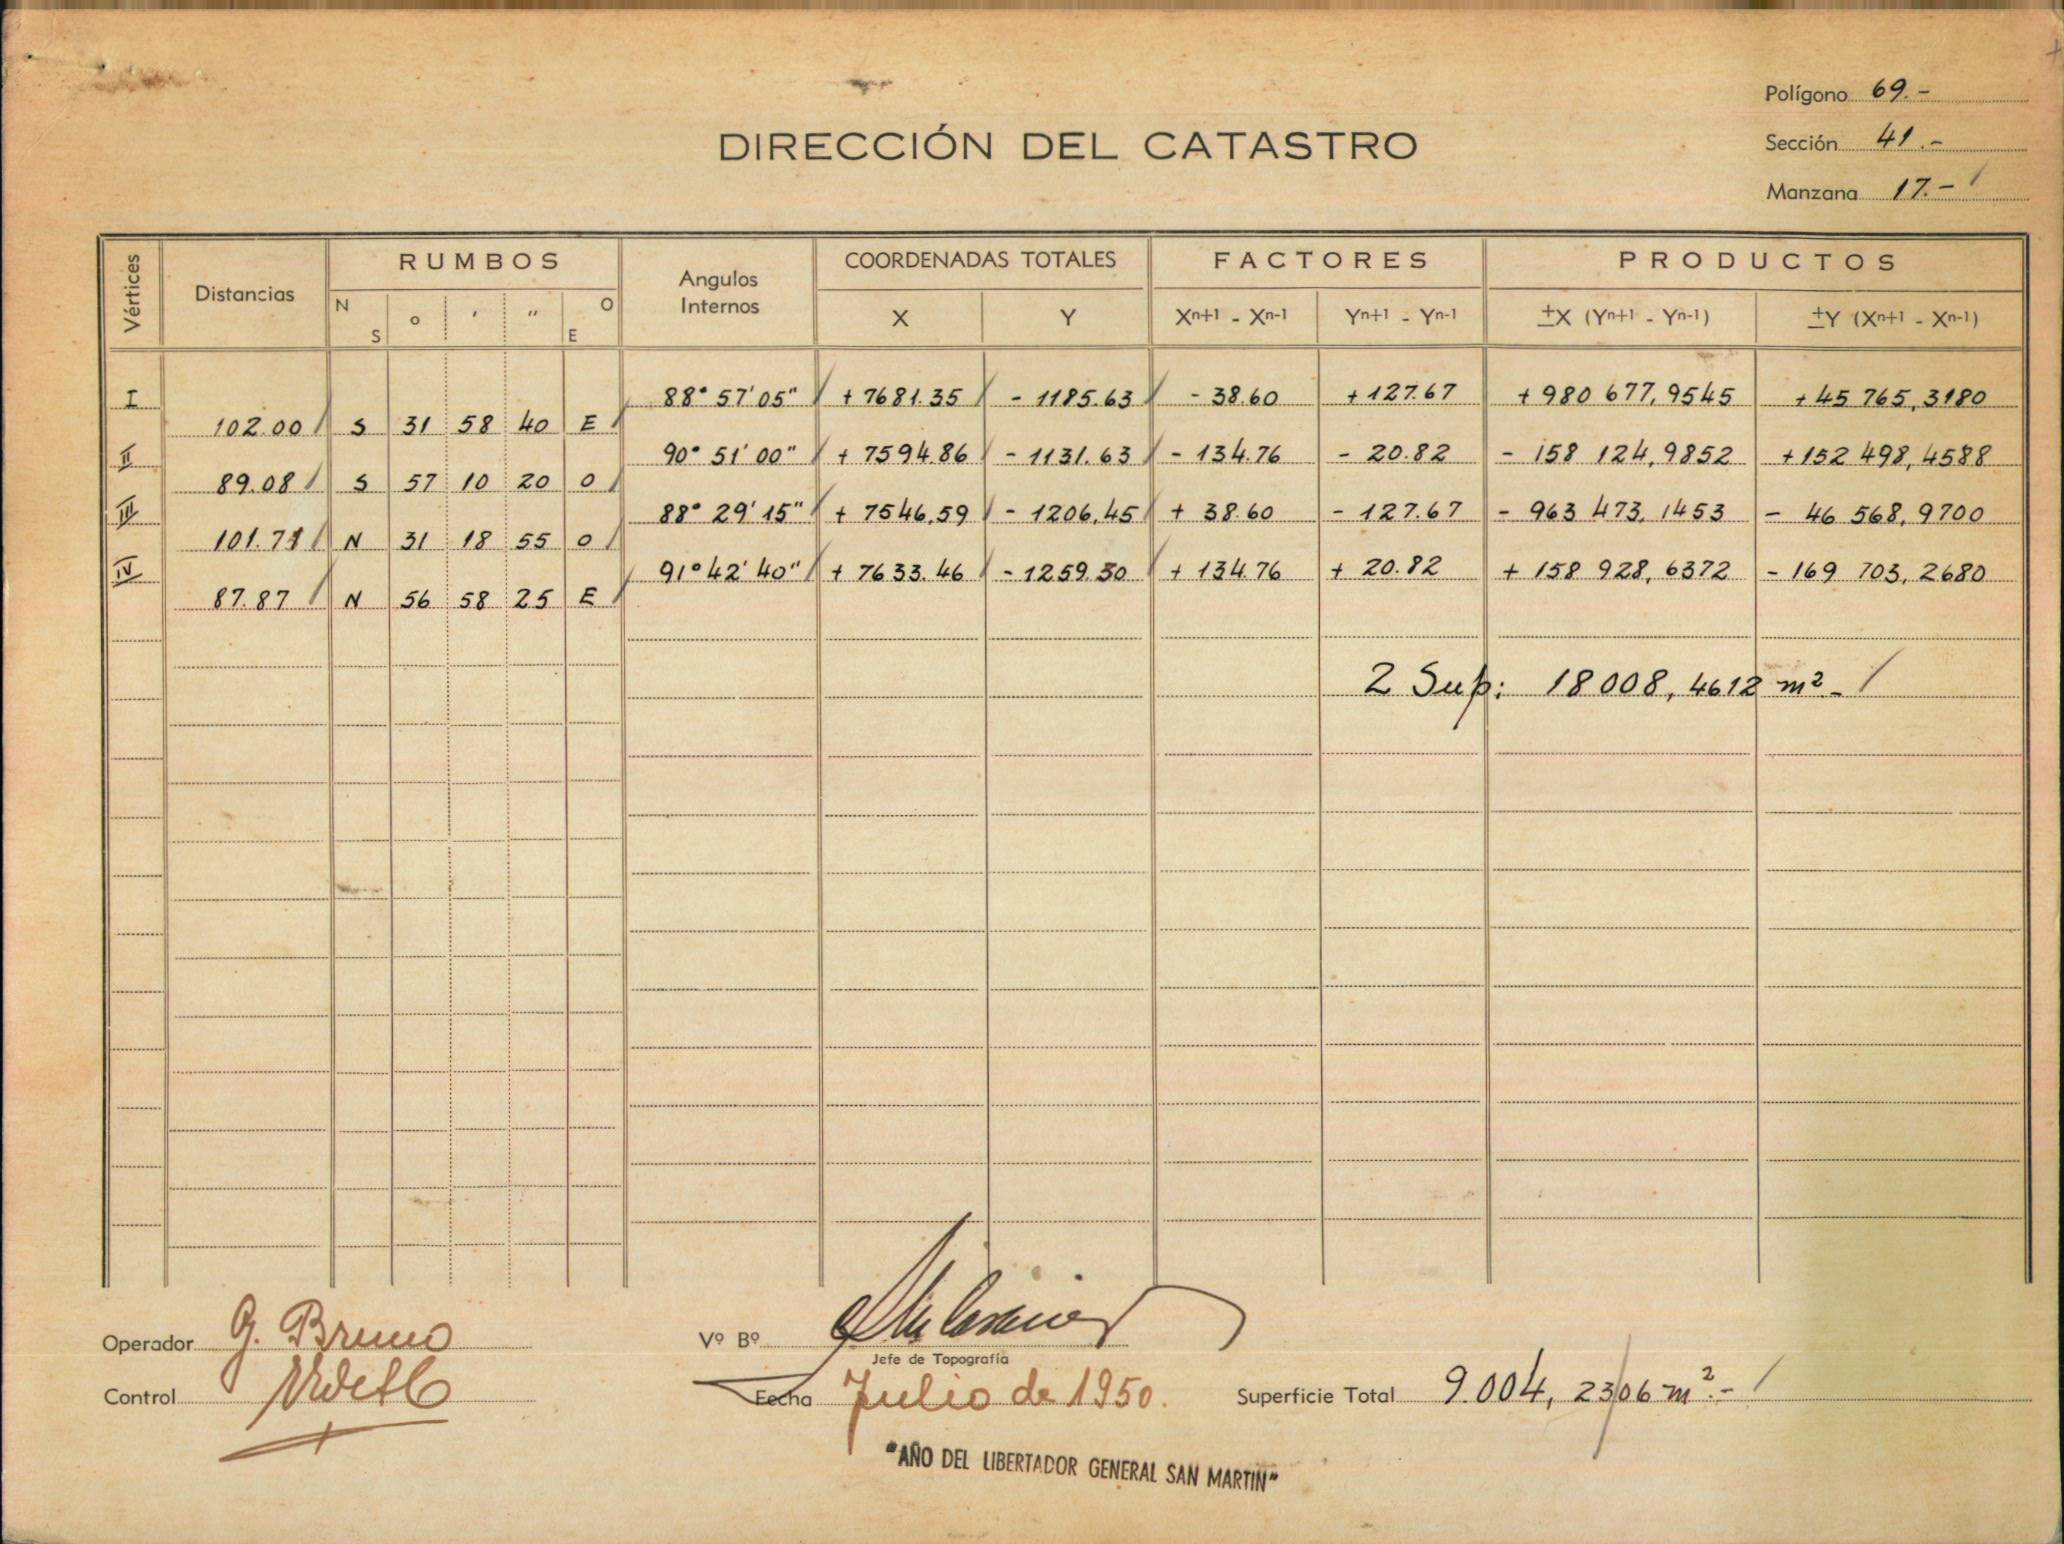 Polígono 69.-
DIRECCIÓN DEL CATASTRO
Sección 41.-
Manzana 17.-
Vértices Distancias RUMBOS Angulos Internos COORDENADAS TOTALES FACTORES PRODUCTOS
N S ° ' " O E X Y Xn+1 - Xn-1 Yn+1 - Yn-1 ±X (Yn+1 - Yn-1) ±Y (Xn+1 - Xn-1)
I 88° 57' 05" + 7681.35 - 1185.63 - 38.60 + 127.67 + 980 677,9545 + 45 765,3180
102.00 S 31 58 40 E
II 90° 51' 00" + 7594.86 - 1131.63 - 134.76 - 20.82 - 158 124,9852 + 152 498,4588
89.08 S 57 10 20 O
III 88° 29' 15" + 7546,59 - 1206,45 + 38.60 - 127.67 - 963 473,1453 - 46 568,9700
101.71 N 31 18 55 O
IV 91° 42' 40" + 7633.46 - 1259.30 + 134.76 + 20.82 + 158 928,6372 - 169 703,2680
87.87 N 56 58 25 E
2 Sup: 18 008, 4612 m² -
Operador G. Bruno
Vº Bº
Jefe de Topografía
Control
Fecha Julio de 1950.
Superficie Total 9.004, 2306 m².-
"AÑO DEL LIBERTADOR GENERAL SAN MARTIN"